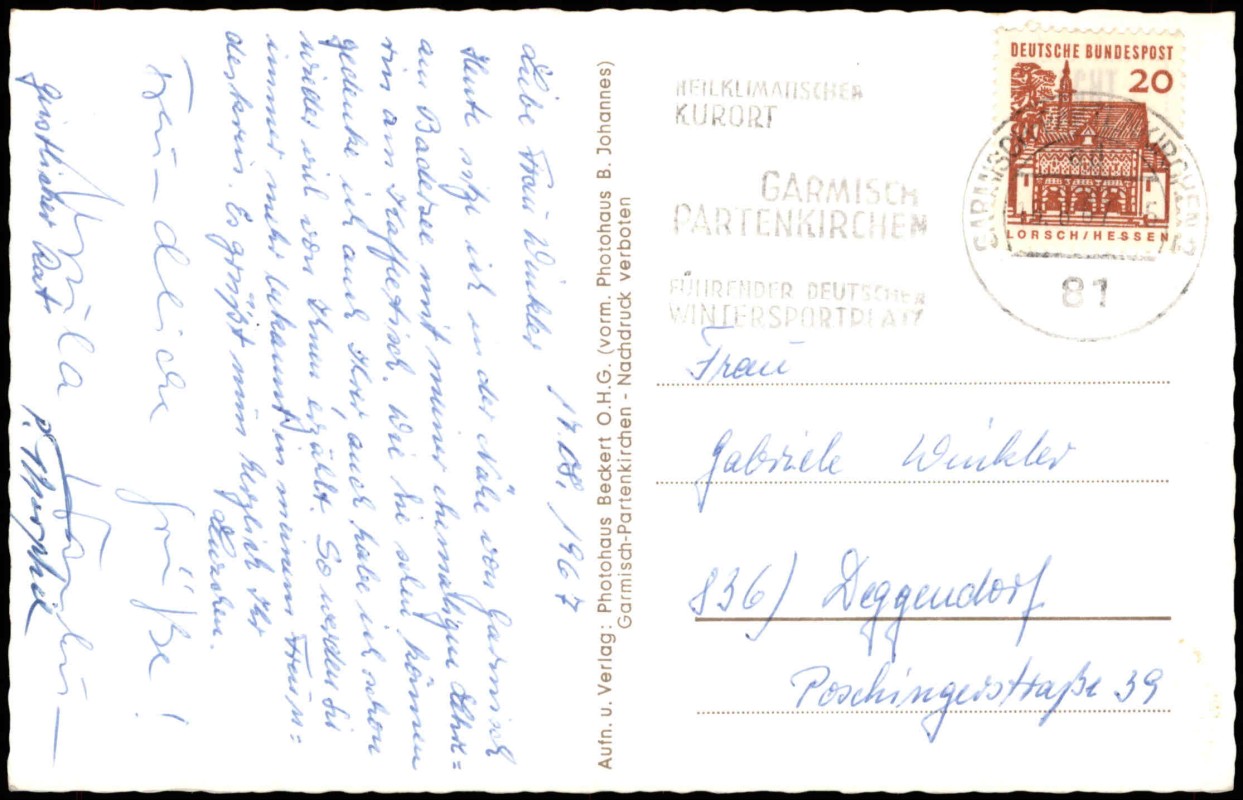 17.08.1967
Liebe Frau Winkler
Heute sitze ich in der Nähe von Garmisch
am Badersee mit meiner ehemaligen Lehre=
rin am Kaffeetisch. Wie Sie sehen können
gedenke ich auch Ihrer, auch habe ich schon
wieder viel von Ihnen erzählt. So werden Sie
immer mehr bekannt in meinem Freun=
deskreis. Es grüßt nun herzlich Ihr
Freundliche Grüße!
Geistlicher Rat
Aufn. u. Verlag: Photohaus Beckert O.H.G. (vorm. Photohaus B. Johannes)
Garmisch-Partenkirchen - Nachdruck verboten
HEILKLIMATISCHER
KURORT
GARMISCH
PARTENKIRCHEN
FÜHRENDER DEUTSCHER
WINTERSPORTPLATZ
DEUTSCHE BUNDESPOST
20
LORSCH/HESSEN
81
Frau
Gabriele Winkler
836) Deggendorf
Poschingerstraße 39